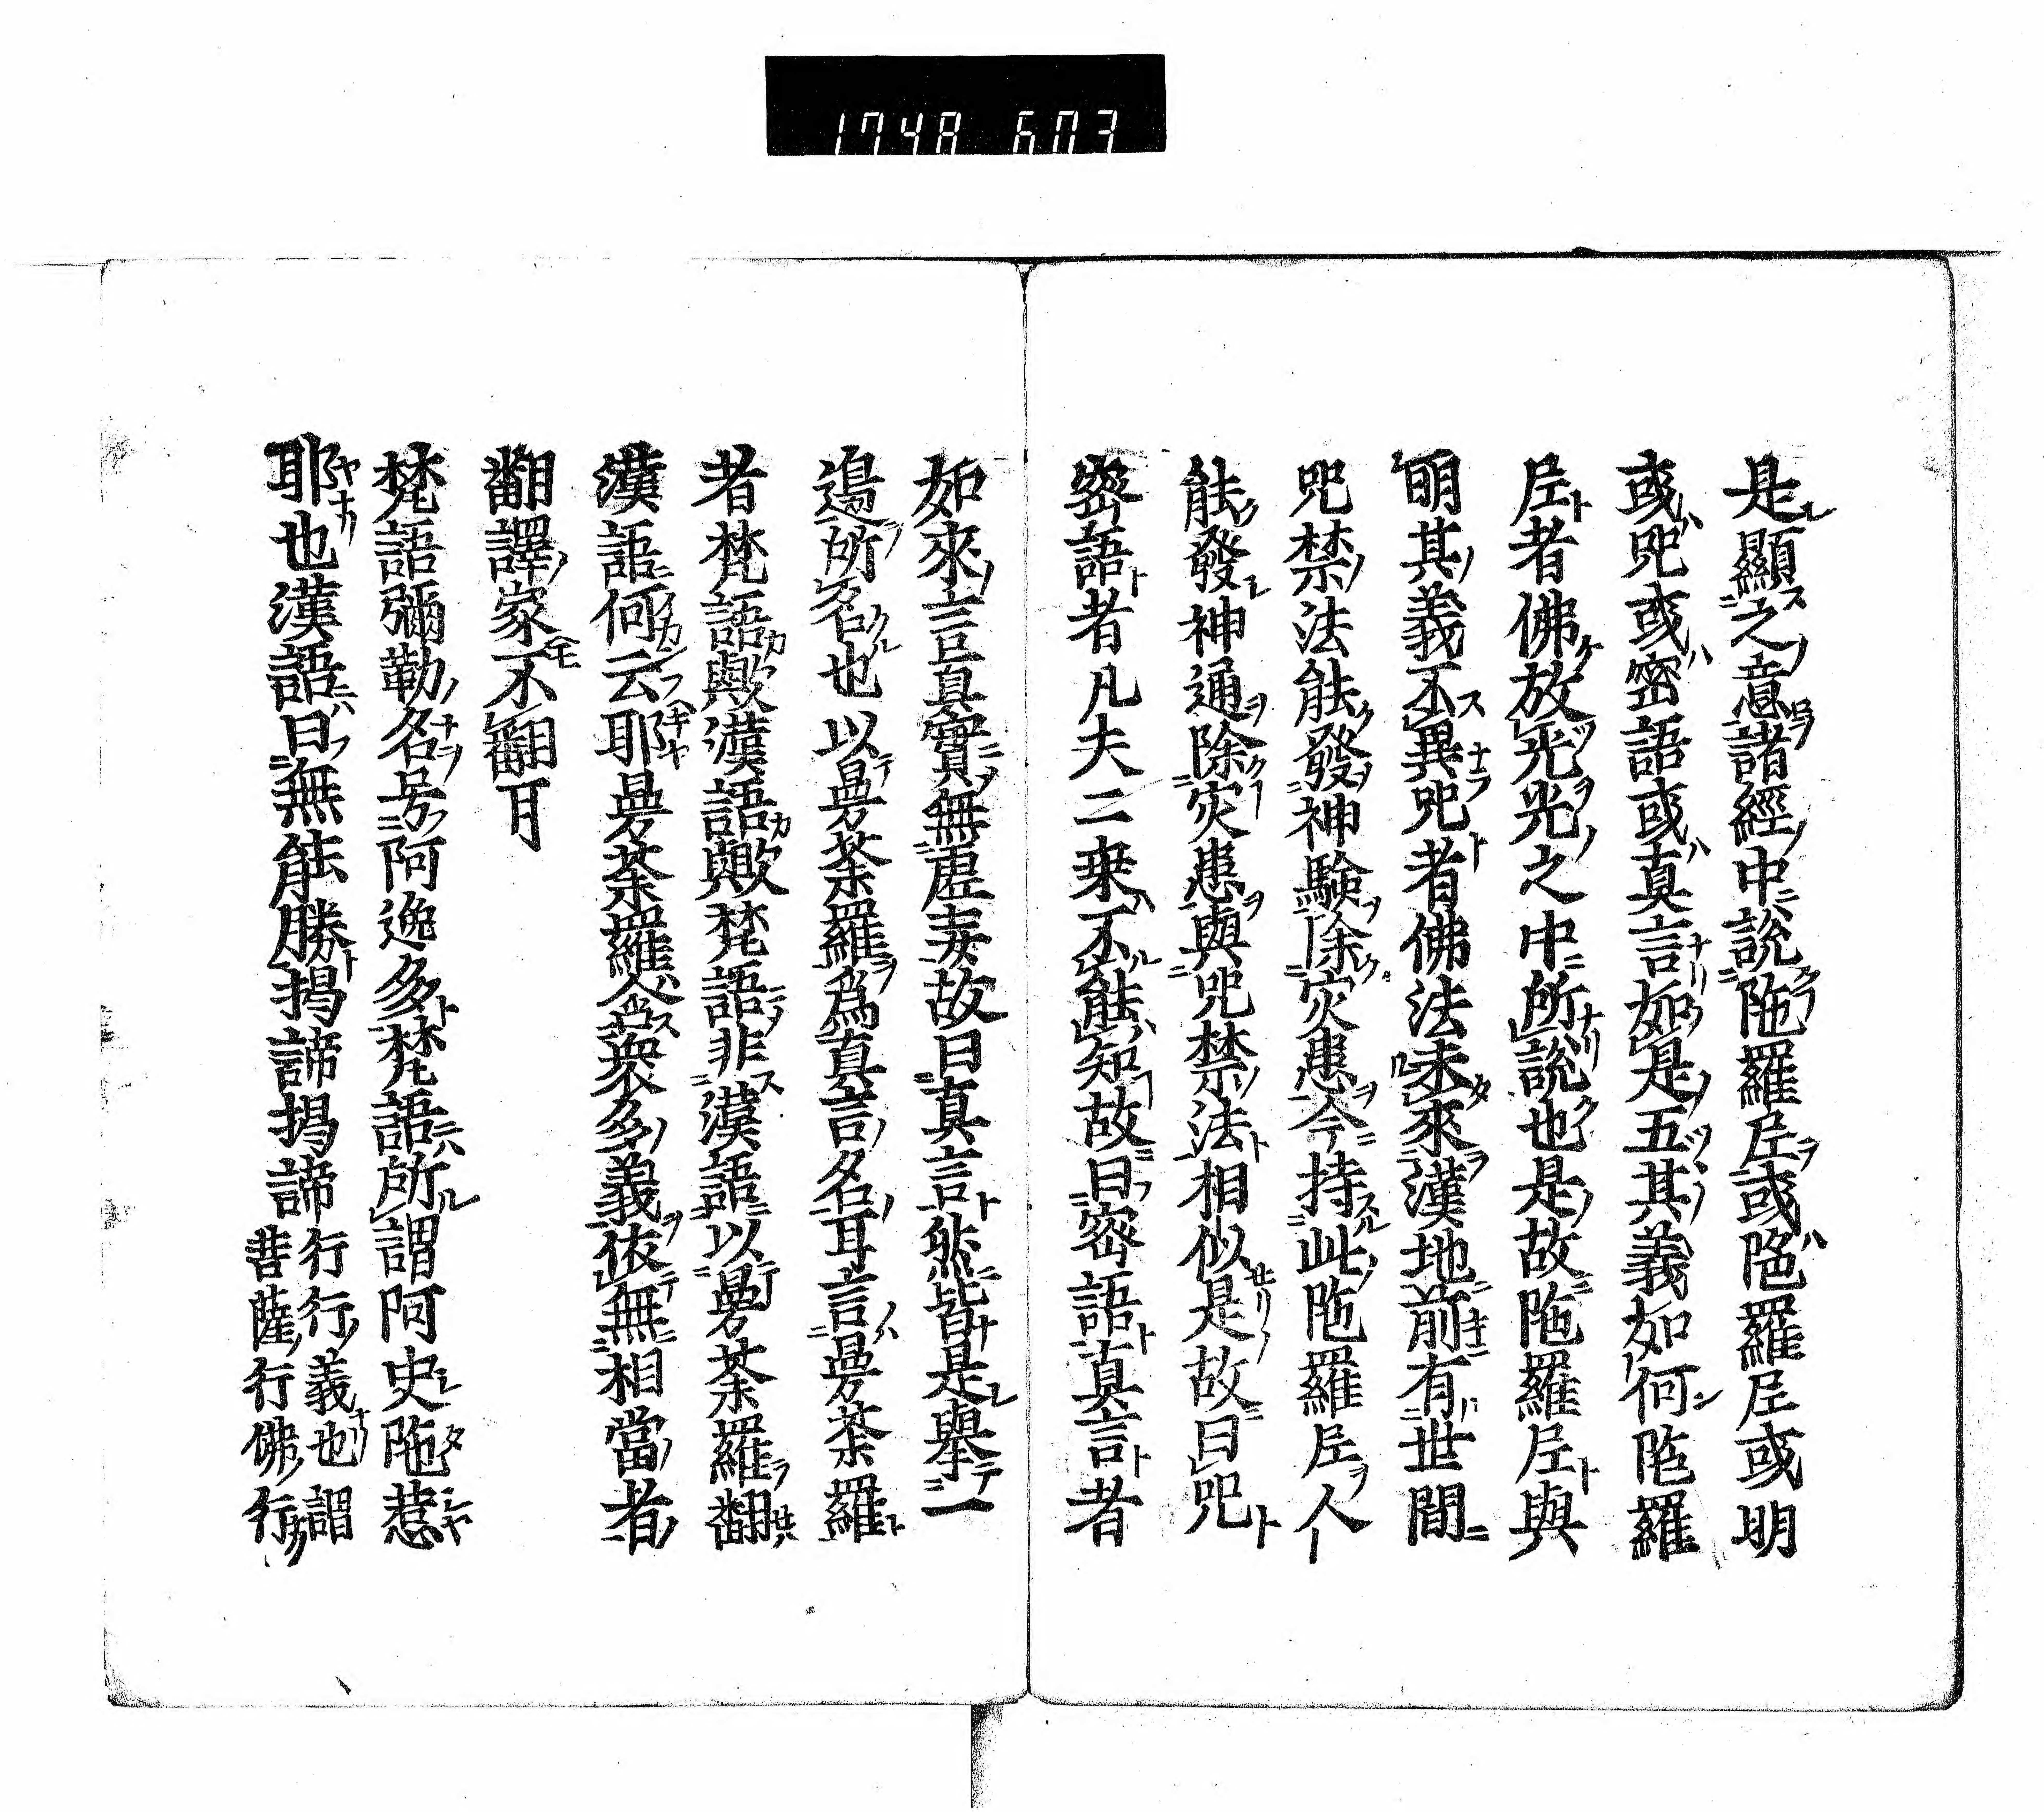 1748 603
是顯之意諸經中說陁羅尼或陁羅尼或明
或咒或密語或真言如是五其義如何陁羅
尼者佛放光光之中所說也是故陁羅尼與
明其義不異咒者佛法未來漢地前有世間
咒禁法能發神驗除灾患今持此陁羅尼人
能發神通除灾患與咒禁法相似是故曰咒
密語者凡夫二乗不能知故曰密語真言者
如來言真實無虛妄故曰真言然皆是舉一
邊所名也以曼荼羅為真言名耳言曼荼羅
者梵語歟漢語歟梵語非漢語以曼荼羅翻
漢語何云耶曼荼羅含衆多義依無相當者
翻譯家不翻耳
梵語彌勒名号阿逸多梵語所謂阿史陁惹
耶也漢語曰無能勝揭諦揭諦行行義也謂
菩薩行佛行